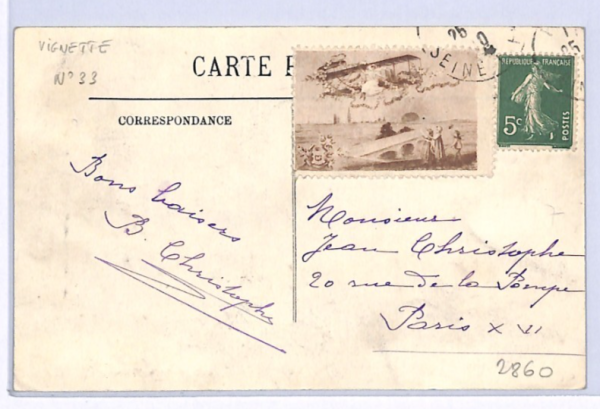 VIGNETTE
N° 33
CARTE P
CORRESPONDANCE
SEINE
25
RÉPUBLIQUE FRANÇAISE
5c
POSTES
Bons baisers
B. Christophe
Monsieur
Jean Christophe
20 rue de la Pompe
Paris XVI
2860